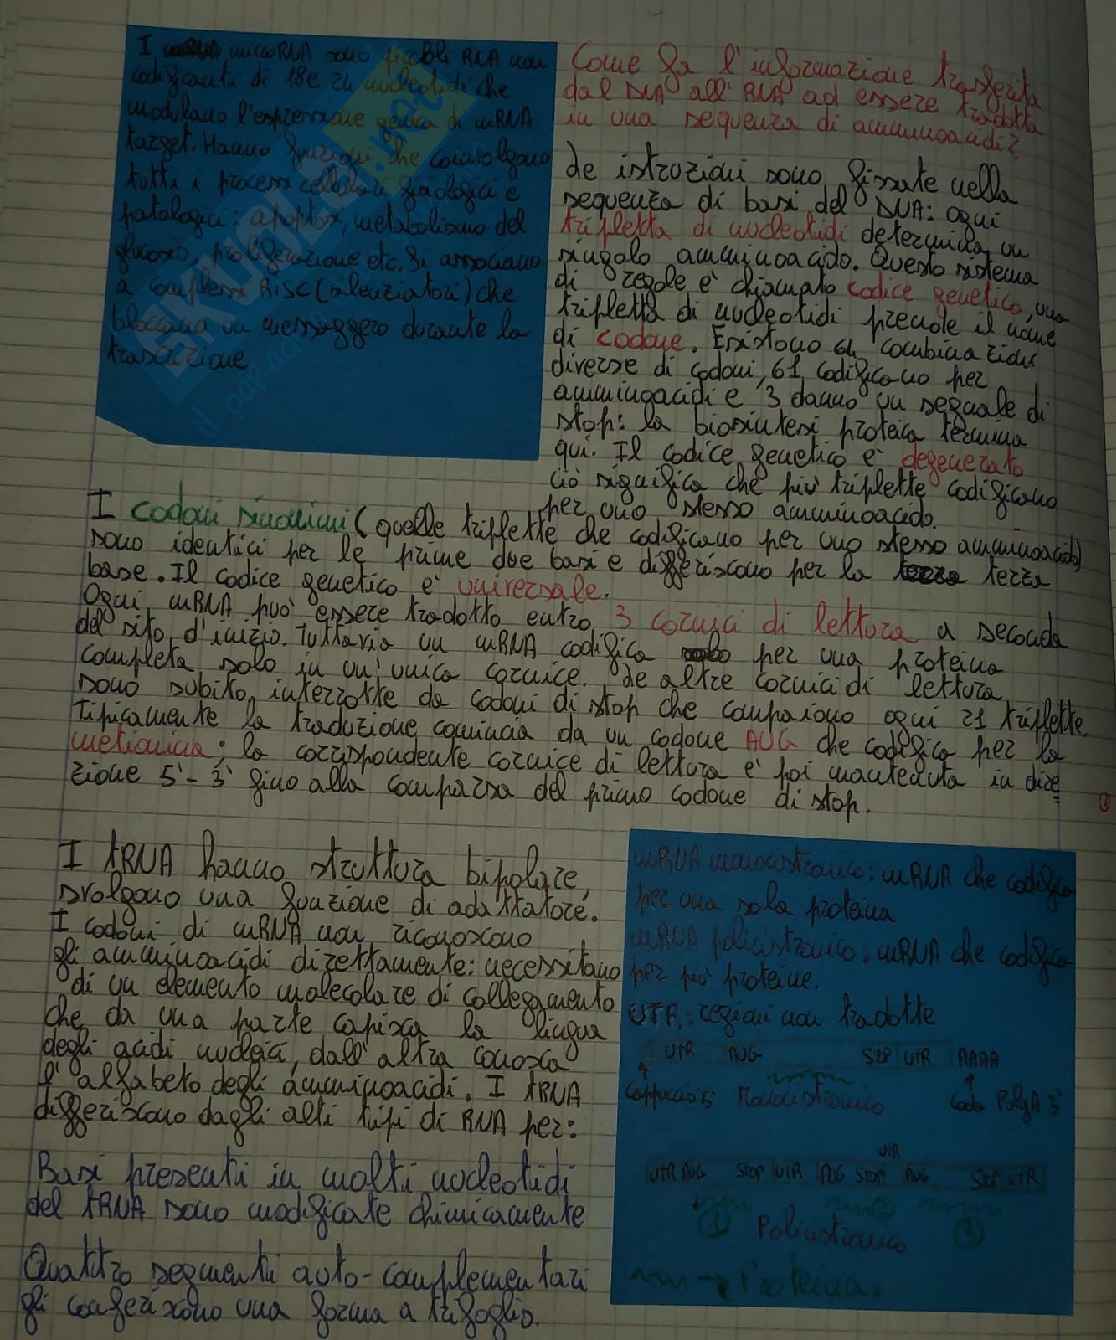 I microRNA sono piccoli RNA non
codificanti di 18 e 24 nucleotidi che
modulano l'espressione genica di mRNA
target. Hanno funzioni che coinvolgono
tutti i processi cellulari fisiologici e
patologici: apoptosi, metabolismo del
glucosio, proliferazione etc. Si associano
a complessi RISC (silenziatori) che
bloccano un messaggero durante la
traduzione
SKUOLA.net
Come fa l'informazione trasferita
dal DNA all'RNA ad essere tradotta
in una sequenza di amminoacidi?
Le istruzioni sono fissate nella
sequenza di basi del DNA: ogni
tripletta di nucleotidi determina un
singolo amminoacido. Questo sistema
di regole è chiamato codice genetico, una
tripletta di nucleotidi prende il nome
di codone. Esistono 64 combinazioni
diverse di codoni, 61 codificano per
amminoacidi e 3 danno un segnale di
stop: la biosintesi proteica termina
qui. Il codice genetico è degenerato
ciò significa che più triplette codificano
per uno stesso amminoacido.
I codoni sinonimi (quelle triplette che codificano per uno stesso amminoacido)
sono identici per le prime due basi e differiscono per la terza
base. Il codice genetico è universale.
Ogni mRNA può essere tradotto entro 3 cornici di lettura a seconda
del sito d'inizio. Tuttavia un mRNA codifica per una proteina
completa solo in un'unica cornice. Le altre cornici di lettura
sono subito interrotte da codoni di stop che compaiono ogni 21 triplette
Tipicamente la traduzione comincia da un codone AUG che codifica per la
metionina; la corrispondente cornice di lettura è poi mantenuta in dire
zione 5'-3' fino alla comparsa del primo codone di stop.
I tRNA hanno struttura bipolare,
svolgono una funzione di adattatore.
I codoni di mRNA non riconoscono
gli amminoacidi direttamente: necessitano
di un elemento molecolare di collegamento
che da una parte capisca la lingua
degli acidi nucleici, dall'altra conosca
l'alfabeto degli amminoacidi. I tRNA
differiscono dagli altri tipi di RNA per:
Basi presenti in molti nucleotidi
del tRNA sono modificate chimicamente
Quattro segmenti auto-complementari
gli conferiscono una forma a trifoglio.
mRNA monocistronico: mRNA che codifica
per una sola proteina
mRNA policistronico: mRNA che codifica
per più proteine.
UTR: regioni non tradotte
UTR AUG STOP UTR AAAA
Cappuccio 5' Monocistronico Coda PolyA 3'
UTR
UTR AUG STOP UTR AUG STOP AUG STOP UTR
① ② ③
Policistronico
→ Proteina